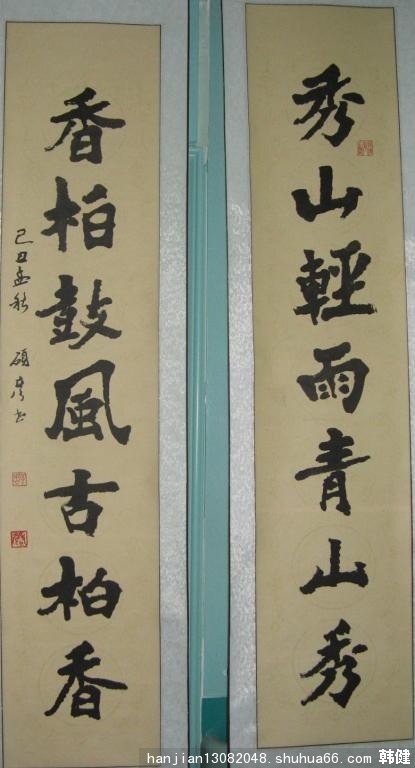 秀山輕雨青山秀
香柏鼓風古柏香
己丑孟秋 碩彦书
hanjian13082048. shuhua66. com 韩健